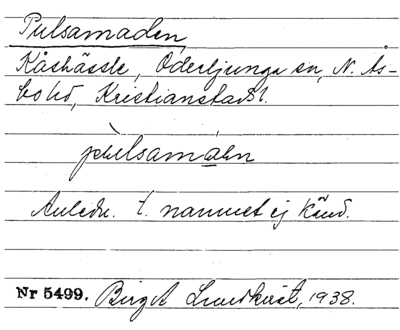 Pulsamaden
Kåshässle, Oderljunga sn, N. Ås-
bo hd, Kristianstads l.
pùlsamàdn
Anledn. t. namnet ej känd.
Nr 5499. Birgit Lundkvist, 1938.